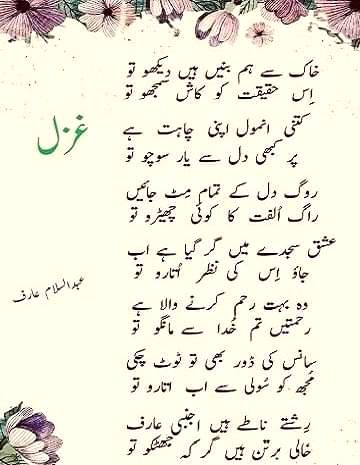 خاک سے ہم بنیں ہیں دیکھو تو
اِس حقیقت کو کاش سمجھو تو
غزل
کتنی انمول اپنی چاہت ہے
پر کبھی دل سے یار سوچو تو
روگ دل کے تمام مِٹ جائیں
راگ اُلفت کا کوئی چھیڑو تو
عشق سجدے میں گر گیا ہے اب
جاؤ اِس کی نظر اُتارو تو
عبدالسلام عارف
وہ بہت رحم کرنے والا ہے
رحمتیں تم خُدا سے مانگو تو
سانس کی ڈور بھی تو ٹوٹ چکی
مُجھ کو سُولی سے اب اتارو تو
رِشتے ناطے ہیں اجنبی عارف
خالی برتن ہیں گر کہ جھٹکو تو